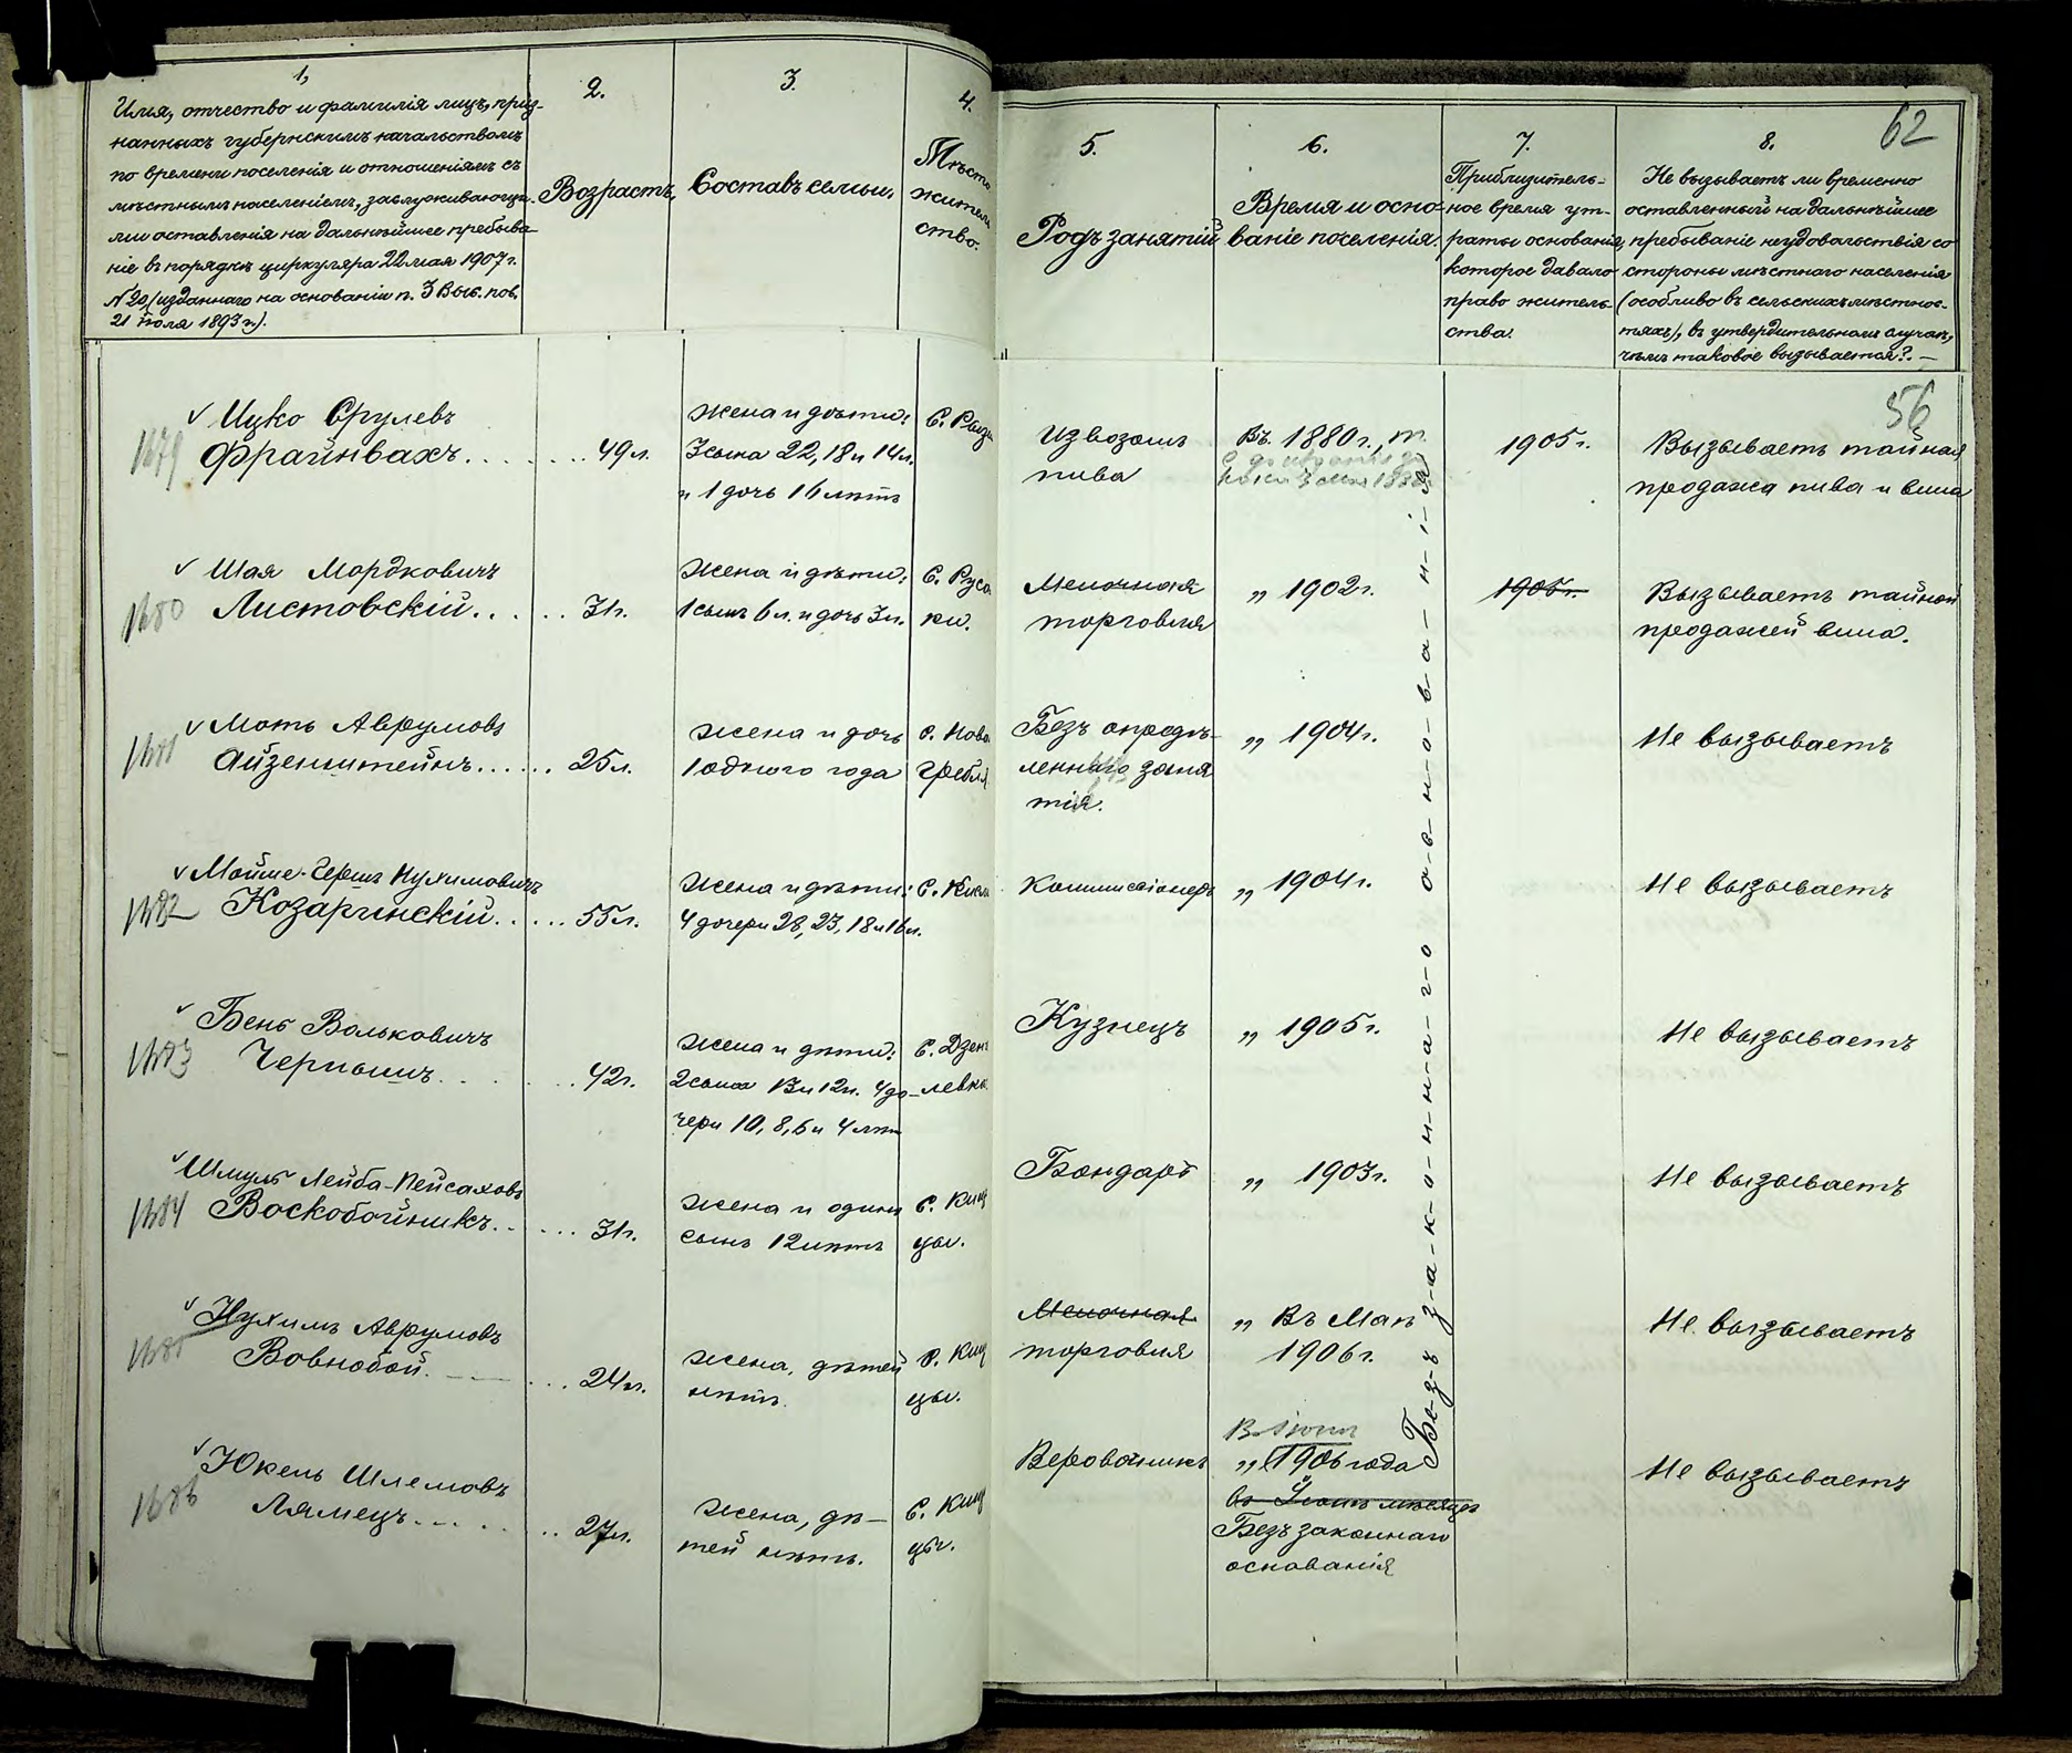 1,
Имя, отчество и фамилія лицъ, приз-
нанныхъ губернскимъ начальствомъ
по времени поселенія и отношеніямъ съ
мѣстнымъ населеніемъ, заслуживающи-
ми оставленія на дальнѣйшее пребыва-
ніе въ порядкѣ циркуляра 22 мая 1907 г.
№ 20, (изданнаго на основаніи п. 3 Выс. пов.
21 Іюля 1893 г.).
2.
Возрастъ.
3.
Составъ семьи.
4.
Мѣсто
житель
ство.
5.
Родъ занятій
6.
Время и осно-
ваніе поселенія.
7.
Приблизитель-
ное время ут-
раты основанія,
которое давало
право житель-
ства.
8.
Не вызываетъ ли временно
оставленный на дальнѣйшее
пребываніе неудовольствія со
стороны мѣстнаго населенія
(особливо въ сельскихъ мѣстнос-
тяхъ), въ утвердительномъ случаѣ,
чѣмъ таковое вызывается?. —
62
56
1679
Ицко Срулевъ
Фрайнвахъ. . . . . . . 49 л.
жена и дѣти:
3 сына 22, 18 и 14 л.
и 1 дочь 16 лѣтъ
С.
извозомъ
пива
Въ 1880 г.,
1905 г.
Вызываетъ тайная
продажа пива и вина
1680
Шая Мордковичъ
Листовскій. . . . . . 31 г.
жена и дѣти:
1 сынъ 6 л. и дочь 3 л.
С. Руса
ки.
Мелочная
торговля
„ 1902 г.
1905 г.
Вызываетъ тайной
продажей вина.
1681
Моть Аврумовъ
Айзенштейнъ. . . . . . 25 л.
жена и дочь
1 одного года
С. Нова
гребля
Безъ опредѣ-
леннаго заня
тія.
„ 1904 г.
Не вызываетъ
1682
Мойше-Гершъ Нухимовичъ
Козаринскій. . . . . . 55 л.
жена и дѣти:
4 дочери 28, 23, 18 и 16 л.
С.
Коммиссіонеръ
„ 1904 г.
Не вызываетъ
1683
Бень Вольковичъ
Чернышъ. . . . . . 42 г.
жена и дѣти:
2 сына 13 и 12 л. 4 до-
чери 10, 8, 6 и 4 лѣт
С. Дзен
левка
Кузнецъ
„ 1905 г.
Не вызываетъ
1684
Шмуль Лейба-Пейсаховъ
Воскобойникъ. . . . . . 31 г.
жена и одинъ
сынъ 12 лѣтъ
С. Кищ
цы.
Бондарь
„ 1903 г.
Не вызываетъ
1685
Нухимъ Аврумовъ
Вовнобой. . . . 24 г.
жена, дѣтей
нѣтъ.
С. Кищ
цы.
Мелочная
торговля
„ Въ Маѣ
1906 г.
Не вызываетъ
1686
Юкель Шлемовъ
Лямецъ. . . . . . 27 л.
жена, дѣ-
тей нѣтъ.
С. Кищ
цы.
Веровочникъ
В Іюнѣ
„ 1906 года
въ Іюнѣ мѣсяцѣ
Безъ законнаго
основанія
Не вызываетъ
Бе-з-ъ з-а-к-о-н-н-а-г-о о-с-н-о-в-а-н-і-я